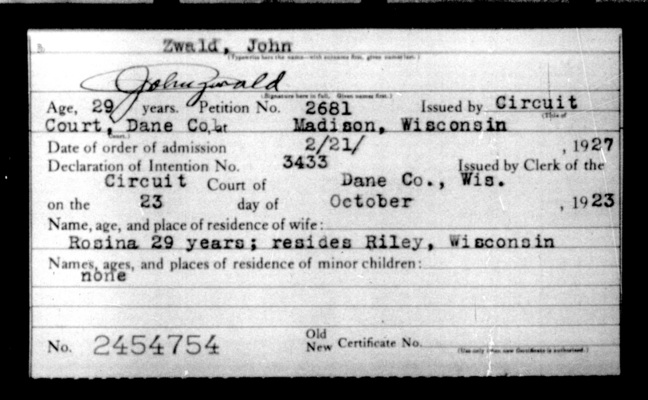 Zwald, John
(Typewrite here the name—with surname first, given names last.)
John Zwald
(Signature here in full. Given names first.)
Age, 29 years. Petition No. 2681 Issued by Circuit
Court, Dane Co, at Madison, Wisconsin
Date of order of admission 2/21/ , 1927
Declaration of Intention No. 3433 Issued by Clerk of the
Circuit Court of Dane Co., Wis.
on the 23 day of October , 1923
Name, age, and place of residence of wife:
Rosina 29 years; resides Riley, Wisconsin
Names, ages, and places of residence of minor children:
none
No. 2454754 Old New Certificate No.
(Use only when new Certificate is authorized.)